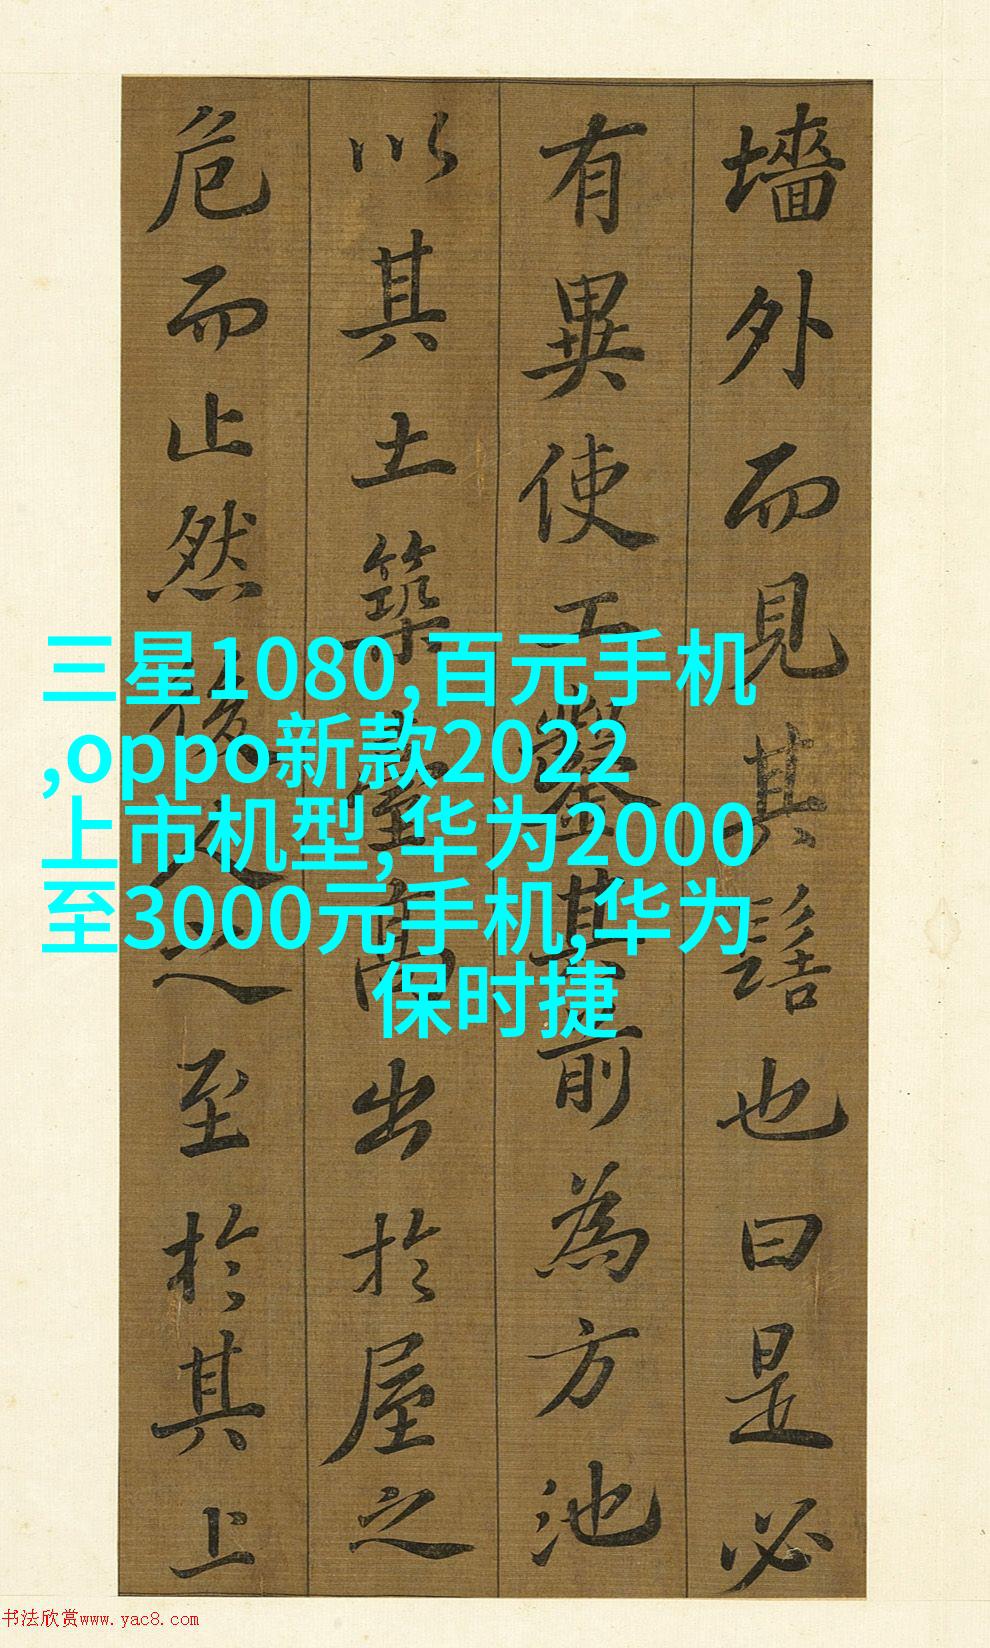 墻外而見其髻也曰是必
有異使工鑿其前為方池
以其土築臺高出於屋之
危而止然後人之至於其上
三星1080,百元手机
,oppo新款2022
上市机型,华为2000
至3000元手机,华为
保时捷
书法欣赏www.yac8.com